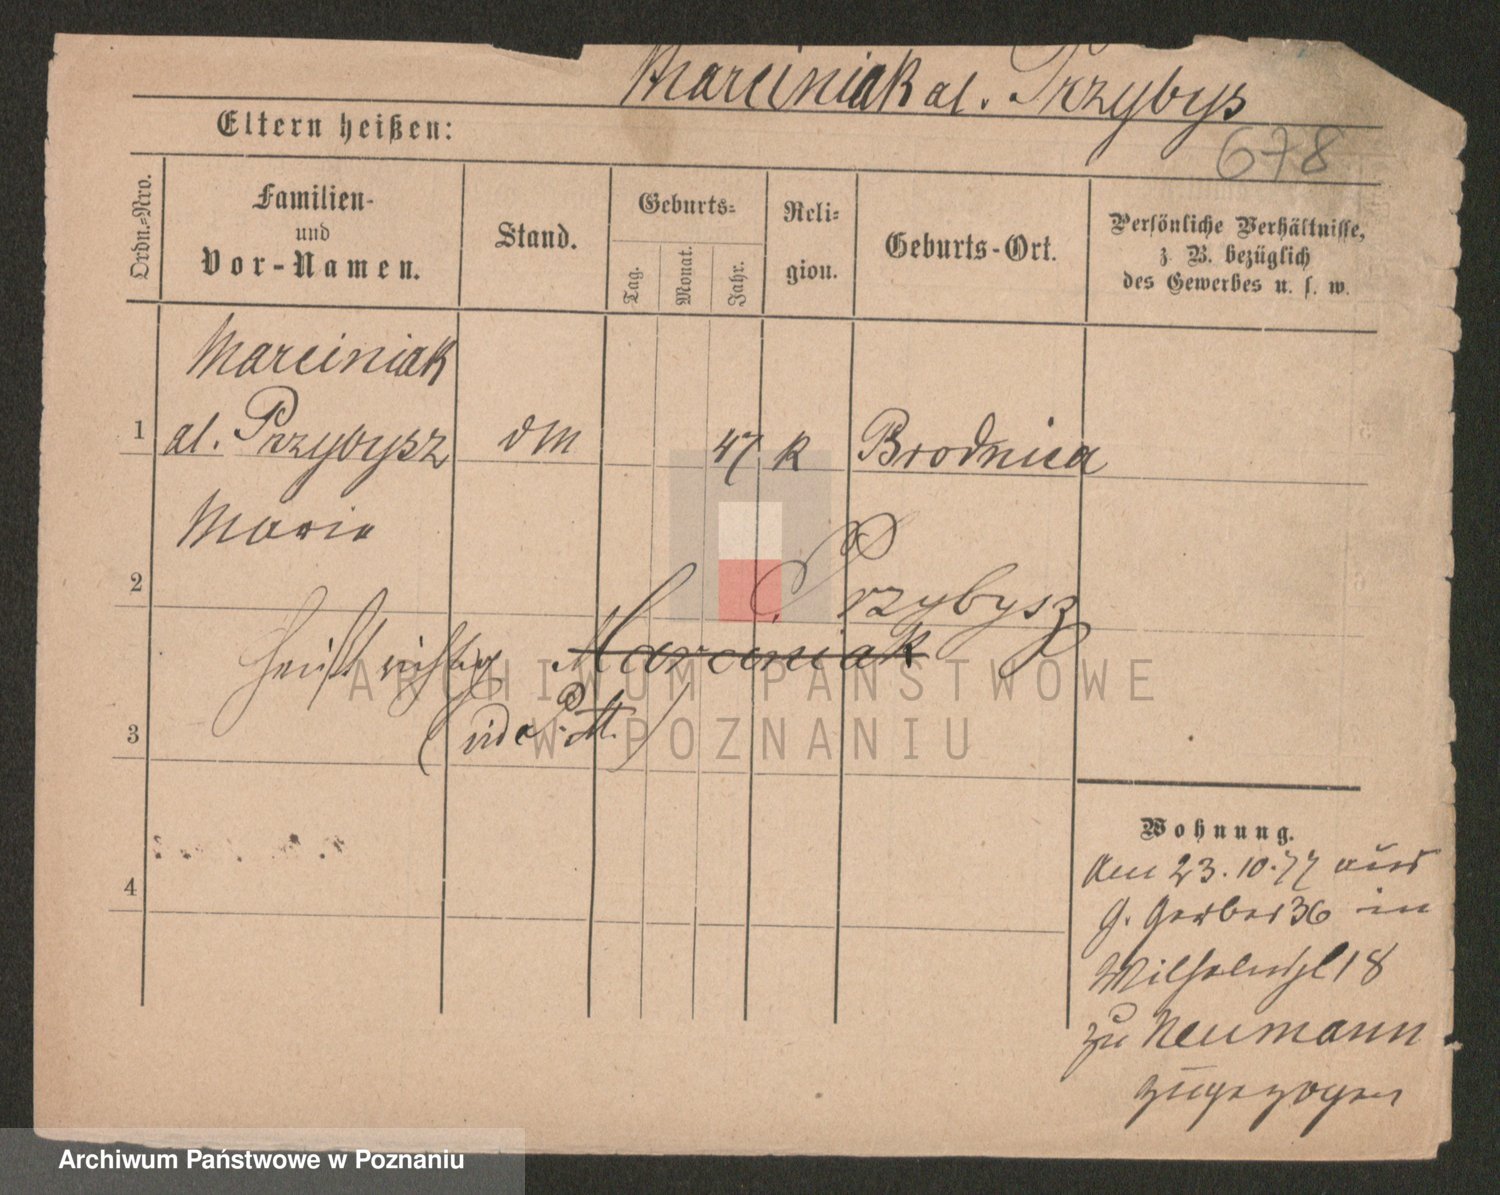 Marciniak al. Przybys
Eltern heißen:
678
Ordn.-Nro.
Familien-
und
Vor-Namen.
Stand.
Geburts-
Tag.
Monat.
Jahr.
Reli-
gion.
Geburts-Ort.
Persönliche Verhältnisse,
z. B. bezüglich
des Gewerbes u. s. w.
Marciniak
1 al. Przybysz DM 47 k Brodnica
Marie
2
Przybysz
heißt richtig Marciniak
3 (vide P. M.)
4
Wohnung.
Am 23.10.77 aus
G. Gerber 36 in
Wilhelmspl 18
zu Neumann
zugezogen
ARCHIWUM PAŃSTWOWE
W POZNANIU
Archiwum Państwowe w Poznaniu